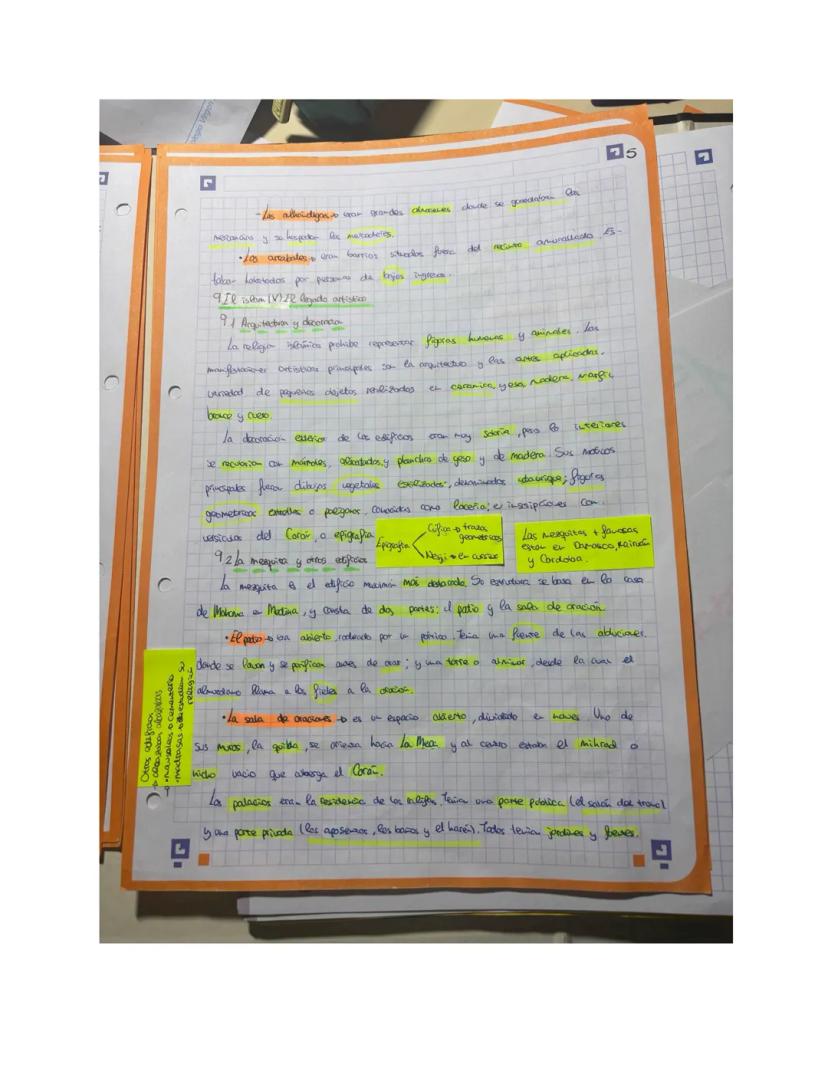 5
·Las alhóndigas → eran grandes almacenes donde se guardaban las
mercancías y se hospedan los mercaderes.
·Los arrabales → eran barrios situados fuera del recinto amurallado. Es-
taban habitados por personas de bajos ingresos.
9. El islam (V) El legado artístico
9.1 Arquitectura y decoración
La religión islámica prohíbe representar figuras humanas y animales. Las
manifestaciones artísticas principales son la arquitectura y las artes aplicadas.
variedad de pequeños objetos realizados en cerámica, yeso, madera, marfil,
bronce y cuero.
La decoración exterior de los edificios eran muy sobria, pero los interiores
se recubrían con mármoles, alicatados, y planchas de yeso y de madera. Sus motivos
principales fueron dibujos vegetales estilizados, denominados ataurique; figuras
geométricas estrellas o polígonos, conocidas como lacería; e inscripciones con
versículos del Corán, o epigrafía
Epigrafía
Cúfica → trazos geométricos
Nesji → en cursiva
Las mezquitas + famosas
están en Damasco, Kairuán
y Córdoba.
9.2 La mezquita y otros edificios
La mezquita es el edificio musulmán más destacado. Su estructura se basa en la casa
de Mahoma en Medina, y consta de dos partes; el patio y la sala de oración
·El patio → era abierto, rodeado por un pórtico. Tenía una fuente de las abluciones.
donde se lavan y se purifican antes de orar; y una torre o alminar, desde la cual el
almuédano llama a los fieles a la oración.
·La sala de oraciones → es un espacio abierto, dividido en naves. Uno de
sus muros, la quibla, se orienta hacia La Meca y al centro estaba el mihrab o
nicho vacío que alberga el Corán.
Los palacios eran la residencia de los califas. Tenían una parte pública (el salón del trono)
y una parte privada (los aposentos, los baños y el harén). Todos tenían jardines y fuentes.
Otros edificios